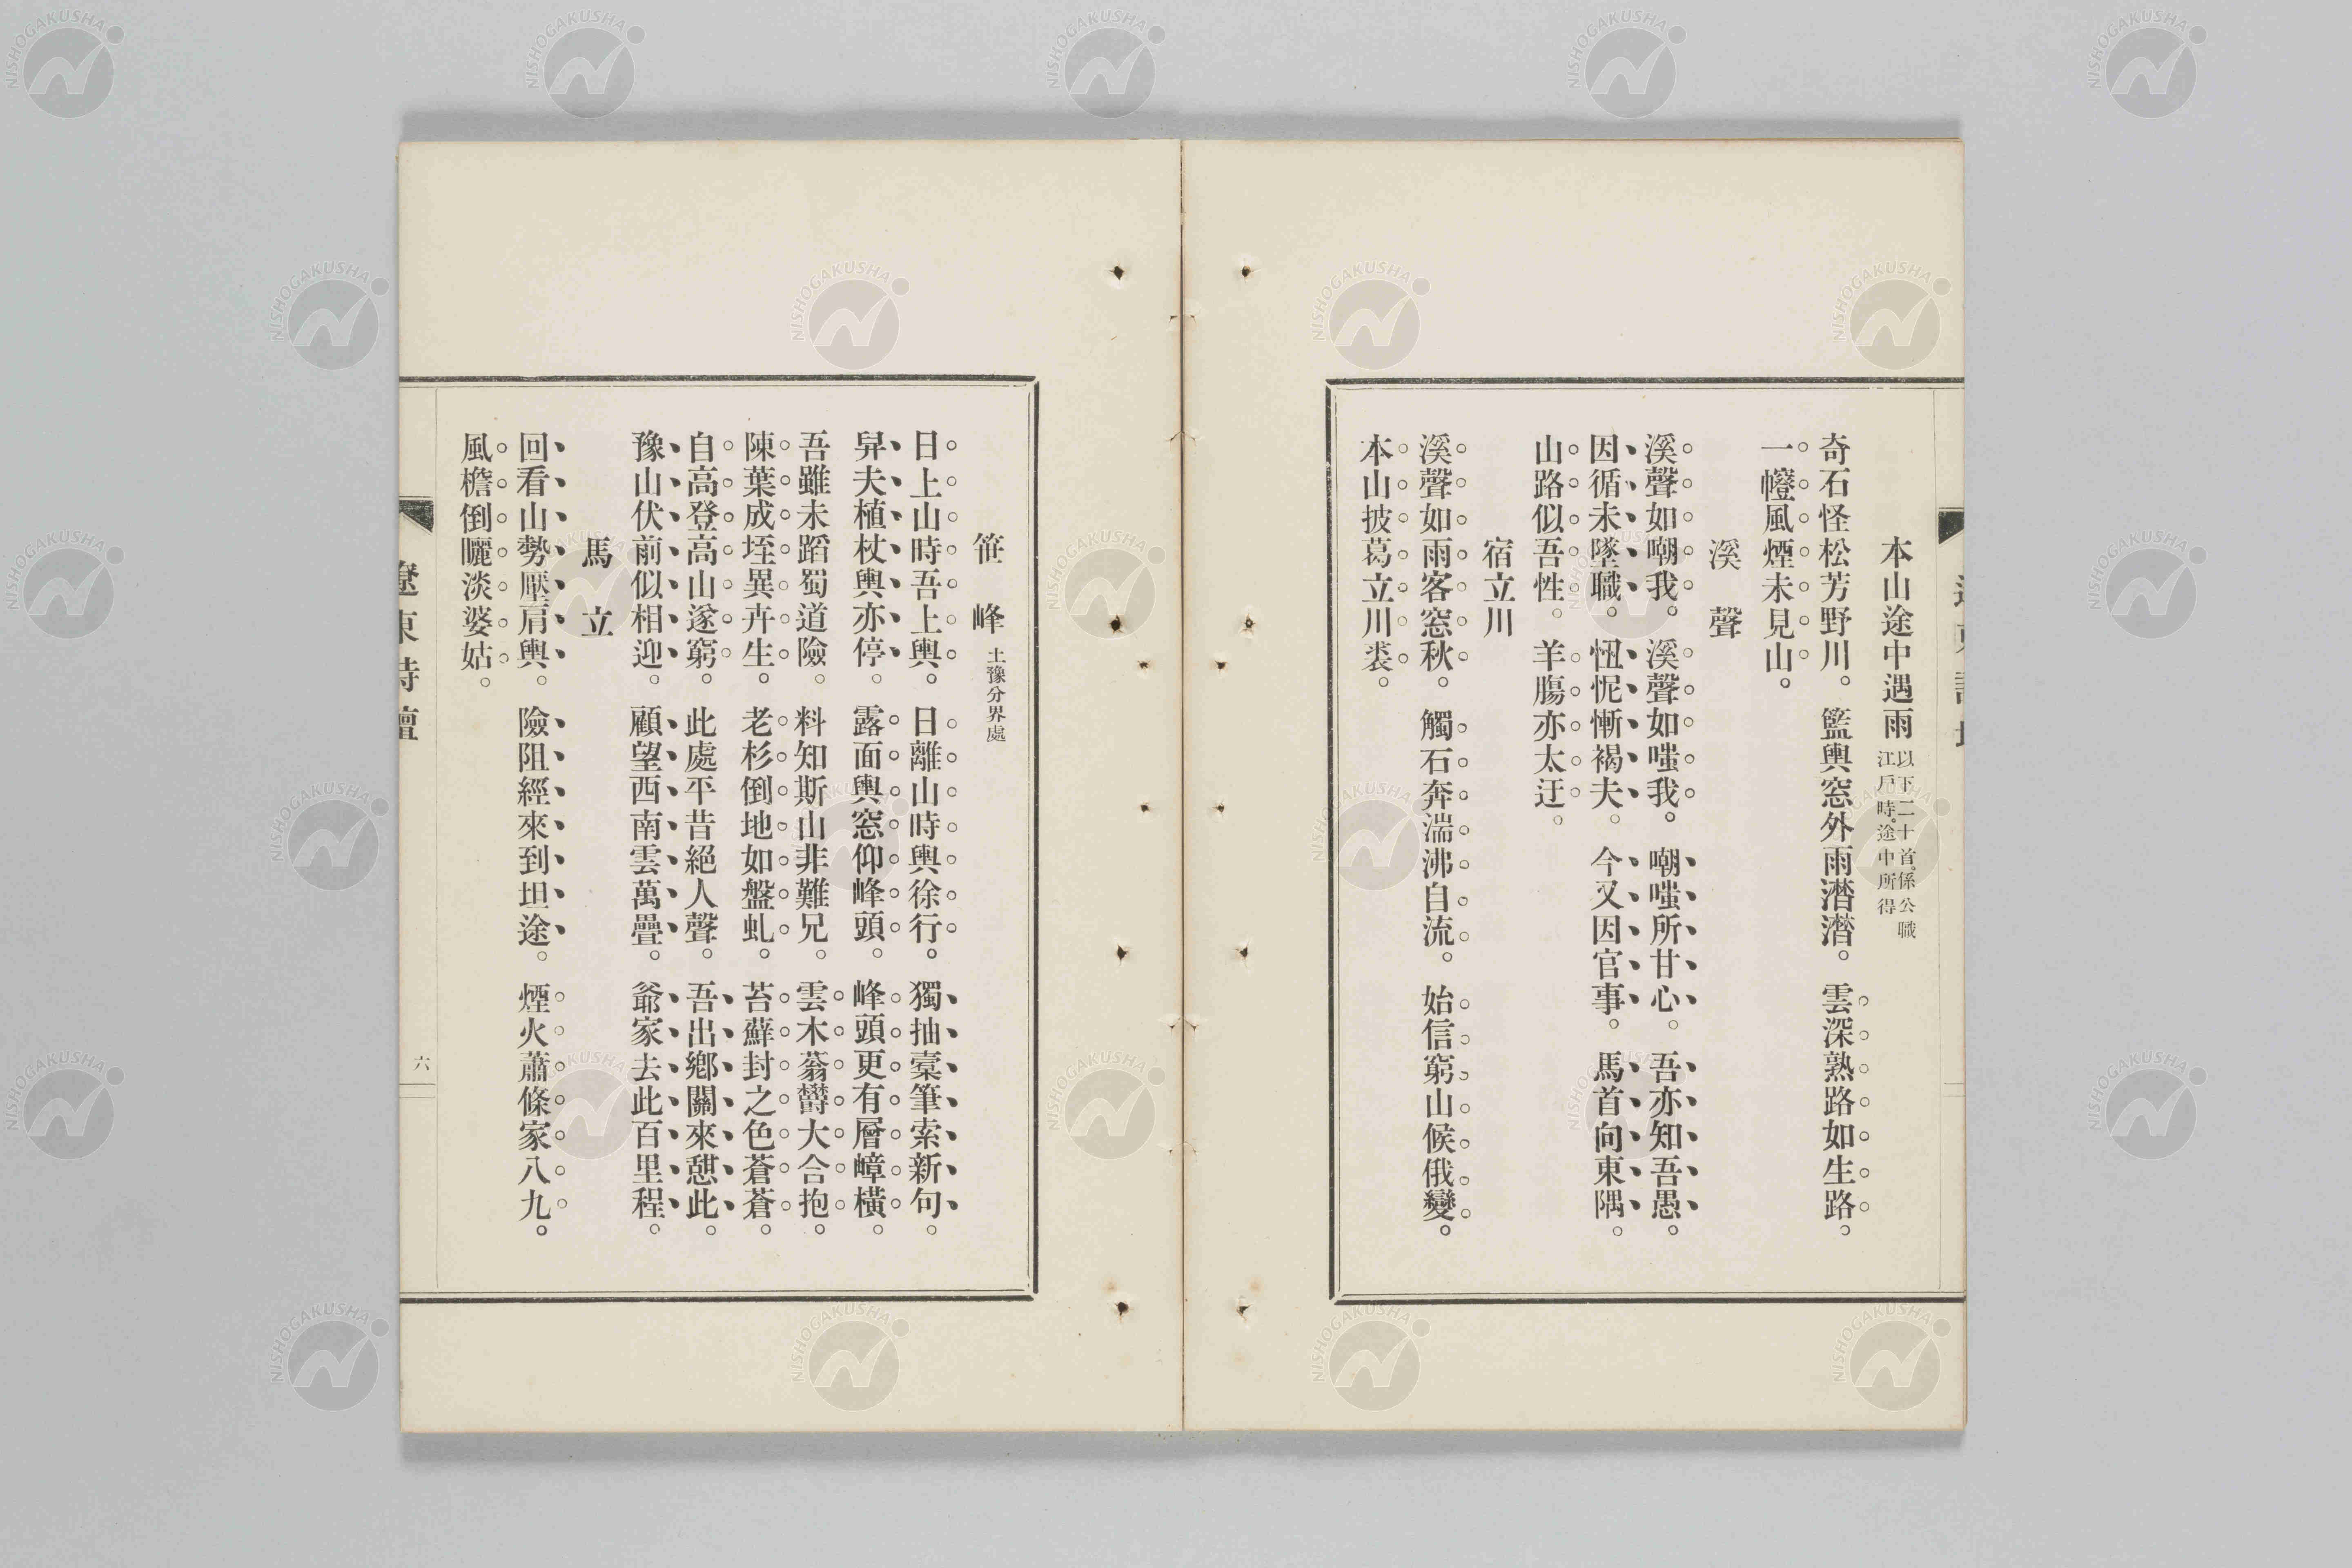 本山途中遇雨 以下二十首。係公職江戶時。途中所得
奇石怪松芳野川。籃輿窓外雨潸潸。雲深熟路如生路。
一㡧風煙未見山。
溪聲
溪聲如嘲我。溪聲如嗤我。嘲嗤所甘心。吾亦知吾愚。
因循未墜職。忸怩慚褐夫。今又因官事。馬首向東隅。
山路似吾性。羊膓亦太迂。
宿立川
溪聲如雨客窓秋。觸石奔湍沸自流。始信窮山候俄變。
本山披葛立川裘。
笹峰 土豫分界處
日上山時吾上輿。日離山時輿徐行。獨抽彙筆索新句。
舁夫植杖輿亦停。露面輿窓仰峰頭。峰頭更有層嶂橫。
吾雖未蹈蜀道險。料知斯山非難兄。雲木蓊欝大合抱。
陳葉成垤異卉生。老杉倒地如盤虬。苔蘚封之色蒼蒼。
自高登高山遂窮。此處平昔絕人聲。吾出鄕關來憇此。
豫山伏前似相迎。顧望西南雲萬疊。爺家去此百里程。
馬立
回看山勢壓肩輿。險阻經來到坦途。煙火蕭條家八九。
風檐倒曬淡婆姑。
遼東詩壇
六
NISHOGAKUSHA